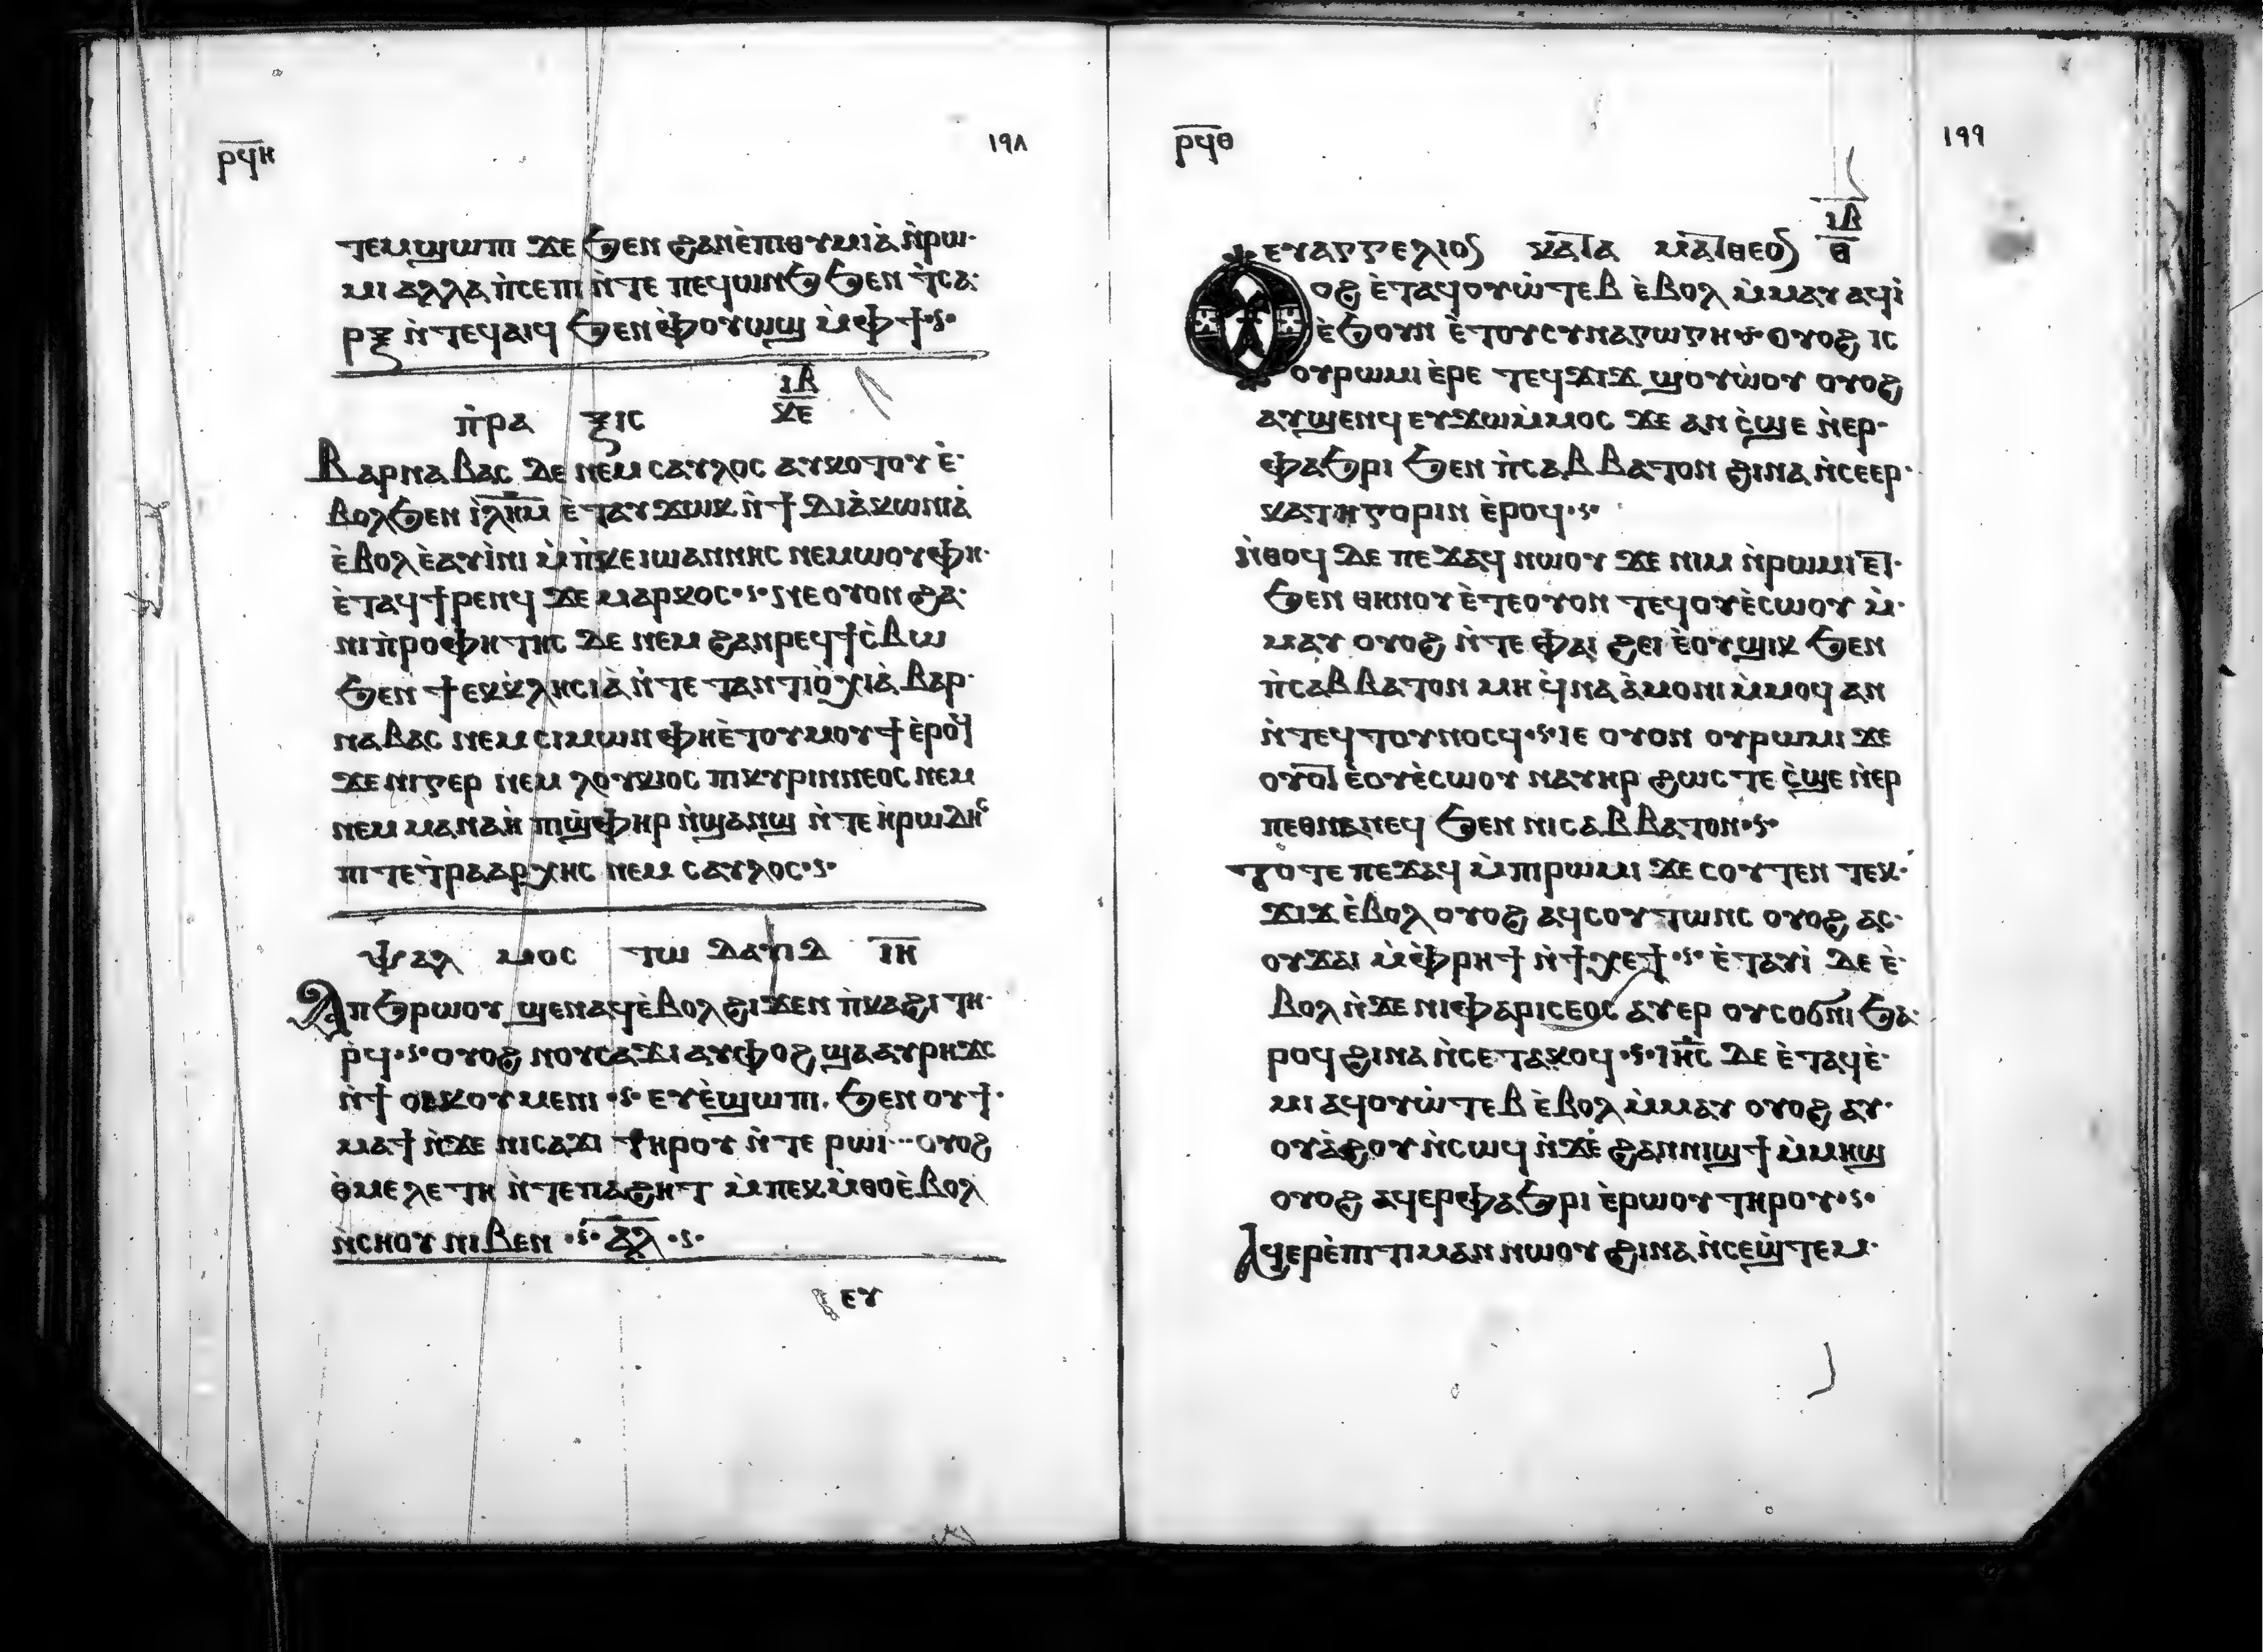 ⲣϥⲏ ١٩٨
ⲧⲉⲙϣⲱⲡⲓ ϫⲉ ϧⲉⲛ ϩⲁⲛⲉ̀ⲡⲓⲑⲩⲙⲓⲁ̀ ⲛ̀ⲣⲱ·
ⲙⲓ ⲁⲗⲗⲁ ⲡ̀ⲥⲉⲡⲓ ⲛ̀ⲧⲉ ⲡⲉϥⲱⲛϧ ϧⲉⲛ ϯⲥⲁ·
ⲣⲝ ⲛ̀ⲧⲉϥⲁⲓϥ ϧⲉⲛ ⲫ̀ⲟⲩⲱϣ ⲙ̀ⲫϯ·ⲋ·
ⲓⲃ
ⲕⲉ
ⲡ̀ⲣⲁ ⲝⲓⲥ
Ⲃⲁⲣⲛⲁⲃⲁⲥ ⲇⲉ ⲛⲉⲙ ⲥⲁⲩⲗⲟⲥ ⲁⲩⲕⲟⲧⲟⲩ ⲉ̀·
ⲃⲟⲗϧⲉⲛ ⲓ̅ⲗ̅ⲏ̅ⲙ̅ ⲉ̀ⲧⲁⲩϫⲱⲕ ⲛ̀ϯ ⲇⲓⲁ̀ⲕⲱⲛⲓⲁ̀
ⲉ̀ⲃⲟⲗⲉ̀ⲁⲩⲓ̀ⲛⲓ ⲙ̀ⲡ̀ⲕⲉⲓⲱⲁⲛⲛⲏⲥ ⲛⲉⲙⲱⲟⲩ ⲫⲏ·
ⲉ̀ⲧⲁⲩϯⲣⲉⲛϥ ϫⲉ ⲙⲁⲣⲕⲟⲥ·ⲋ· ⲛⲉⲟⲩⲟⲛ ϩⲁ·
ⲛⲓⲡ̀ⲣⲟⲫⲏⲧⲏⲥ ⲇⲉ ⲛⲉⲙ ϩⲁⲛⲣⲉϥϯⲥ̀ⲃⲱ
ϧⲉⲛ ϯⲉⲕⲕ̀ⲗⲏⲥⲓⲁ̀ ⲛ̀ⲧⲉ ⲧⲁⲛⲧⲓⲟ̀ⲭⲓⲁ̀ ⲃⲁⲣ·
ⲛⲁⲃⲁⲥ ⲛⲉⲙ ⲥⲓⲙⲱⲛ ⲫⲏⲉ̀ⲧⲟⲩⲙⲟⲩϯ ⲉ̀ⲣⲟϥ
ϫⲉ ⲛⲓⲅⲉⲣ ⲛⲉⲙ ⲗⲟⲩⲕⲓⲟⲥ ⲡⲓⲕⲩⲣⲓⲛⲛⲉⲟⲥ ⲛⲉⲙ
ⲛⲉⲙ ⲙⲁⲛⲁⲏ̀ ⲡⲓϣ̀ⲫⲏⲣ ⲛ̀ϣⲁⲛϣ ⲛ̀ⲧⲉ ⲏ̀ⲣⲱⲇⲏⲥ
ⲡⲓⲧⲉⲧ̀ⲣⲁⲁⲣⲭⲏⲥ ⲛⲉⲙ ⲥⲁⲩⲗⲟⲥ·ⲋ·
ⲯⲁⲗ ⲙⲟⲥ ⲧⲱ ⲇⲁⲩⲓⲇ ⲓ̅ⲏ̅
Ⲁⲡϧⲣⲱⲟⲩ ϣⲉⲛⲁϥⲉ̀ⲃⲟⲗ ϩⲓϫⲉⲛ ⲡ̀ⲕⲁϩⲓ ⲧⲏ·
ⲣϥ·ⲋ· ⲟⲩⲟϩ ⲛⲟⲩⲥⲁϫⲓ ⲁⲩⲫⲟϩ ϣⲁ ⲁⲩⲣⲏϫⲥ
ⲛ̀ϯ ⲟⲓⲕⲟⲩⲙⲉⲛⲓ ·ⲋ· ⲉⲩⲉ̀ϣⲱⲡⲓ. ϧⲉⲛ ⲟⲩϯ·
ⲙⲁϯ ⲛ̀ϫⲉ ⲛⲓⲥⲁϫⲓ ⲧⲏⲣⲟⲩ ⲛ̀ⲧⲉ ⲣⲱⲓ··· ⲟⲩⲟϩ
ⲑ̀ⲙⲉⲗⲉⲧⲏ ⲛ̀ⲧⲉⲡⲁϩⲏⲧ ⲙ̀ⲡⲉⲕⲙ̀ⲑⲟⲉ̀ⲃⲟⲗ
ⲛ̀ⲥⲏⲟⲩ ⲛⲓⲃⲉⲛ ·ⲋ· ⲁ̅ⲗ̅ ·ⲋ·
ⲉⲩ
ⲣϥⲑ ١٩٩
ⲓⲃ
ⲑ
ⲉⲩⲁⲅⲅⲉⲗⲓⲟⲥ ⲕⲁⲧⲁ ⲙⲁⲧⲑⲉⲟⲥ
Ⲟⲩⲟϩ ⲉ̀ⲧⲁϥⲟⲩⲱ̀ⲧⲉⲃ ⲉ̀ⲃⲟⲗ ⲙ̀ⲙⲁⲩ ⲁϥⲓ̀
ⲉ̀ϧⲟⲩⲛ ⲉ̀ⲧⲟⲩⲥⲩⲛⲁⲅⲱⲅⲏ ⲟⲩⲟϩ ⲓⲥ
ⲟⲩⲣⲱⲙⲓ ⲉ̀ⲣⲉ ⲧⲉϥϫⲓϫ ϣⲟⲩⲱ̀ⲟⲩ ⲟⲩⲟϩ
ⲁⲩϣⲉⲛϥ ⲉⲩϫⲱⲙ̀ⲙⲟⲥ ϫⲉ ⲁⲛ ⲥ̀ϣⲉ ⲛ̀ⲉⲣ·
ⲫⲁϧⲣⲓ ϧⲉⲛ ⲡ̀ⲥⲁⲃⲃⲁⲧⲟⲛ ϩⲓⲛⲁ ⲛ̀ⲥⲉⲉⲣ·
ⲕⲁⲧⲏⲅⲟⲣⲓⲛ ⲉ̀ⲣⲟϥ·ⲋ·
ⲛ̀ⲑⲟϥ ⲇⲉ ⲡⲉϫⲁϥ ⲛⲱⲟⲩ ϫⲉ ⲛⲓⲙ ⲛ̀ⲣⲱⲙⲓ ⲉⲧ·
ϧⲉⲛ ⲑⲏⲛⲟⲩ ⲉ̀ⲧⲉⲟⲩⲟⲛ ⲧⲉϥⲟⲩⲉ̀ⲥⲱⲟⲩ ⲙ̀·
ⲙⲁⲩ ⲟⲩⲟϩ ⲛ̀ⲧⲉ ⲫⲁⲓ ϩⲉⲓ ⲉ̀ⲟⲩϣⲓⲕ ϧⲉⲛ
ⲡ̀ⲥⲁⲃⲃⲁⲧⲟⲛ ⲙⲏ ϥ̀ⲛⲁⲁ̀ⲙⲟⲛⲓ ⲙ̀ⲙⲟϥ ⲁⲛ
ⲛ̀ⲧⲉϥⲧⲟⲩⲛⲟⲥϥ·ⲋ· ⲓⲉ ⲟⲩⲟⲛ ⲟⲩⲣⲱⲙⲓ ϫⲉ
ⲟⲩⲟⲧ ⲉ̀ⲟⲩⲉ̀ⲥⲱⲟⲩ ⲛⲁⲩⲏⲣ ϩⲱⲥ ⲧⲉ ⲥ̀ϣⲉ ⲛ̀ⲉⲣ
ⲡⲉⲑⲛⲁⲛⲉϥ ϧⲉⲛ ⲛⲓⲥⲁⲃⲃⲁⲧⲟⲛ·ⲋ·
ⲧⲟⲧⲉ ⲡⲉϫⲁϥ ⲙ̀ⲡⲓⲣⲱⲙⲓ ϫⲉ ⲥⲟⲩⲧⲉⲛ ⲧⲉⲕ·
ϫⲓϫ ⲉ̀ⲃⲟⲗ ⲟⲩⲟϩ ⲁϥⲥⲟⲩⲧⲱⲛⲥ ⲟⲩⲟϩ ⲁⲥ·
ⲟⲩϫⲁⲓ ⲙ̀ⲫ̀ⲣⲏϯ ⲛ̀ϯⲭⲉϯ·ⲋ· ⲉ̀ⲧⲁⲩⲓ̀ ⲇⲉ ⲉ̀·
ⲃⲟⲗ ⲛ̀ϫⲉ ⲛⲓⲫⲁⲣⲓⲥⲉⲟⲥ ⲁⲩⲉⲣ ⲟⲩⲥⲟϭⲛⲓ ϧⲁ·
ⲣⲟϥ ϩⲓⲛⲁ ⲛ̀ⲥⲉⲧⲁⲕⲟϥ ·ⲋ· ⲓ̅ⲏ̅ⲥ̅ ⲇⲉ ⲉ̀ⲧⲁϥⲉ̀·
ⲙⲓ ⲁϥⲟⲩⲱ̀ⲧⲉⲃ ⲉ̀ⲃⲟⲗ ⲙ̀ⲙⲁⲩ ⲟⲩⲟϩ ⲁⲩ·
ⲟⲩⲁ̀ϩⲟⲩ ⲛ̀ⲥⲱϥ ⲛ̀ϫⲉ ϩⲁⲛⲛⲓϣϯ ⲙ̀ⲙⲏϣ
ⲟⲩⲟϩ ⲁϥⲉⲣⲫⲁϧⲣⲓ ⲉ̀ⲣⲱⲟⲩ ⲧⲏⲣⲟⲩ·ⲋ·
Ⲁϥⲉⲣⲉ̀ⲡⲓⲧⲓⲙⲁⲛ ⲛⲱⲟⲩ ϩⲓⲛⲁ ⲛ̀ⲥⲉϣ̀ⲧⲉⲙ·